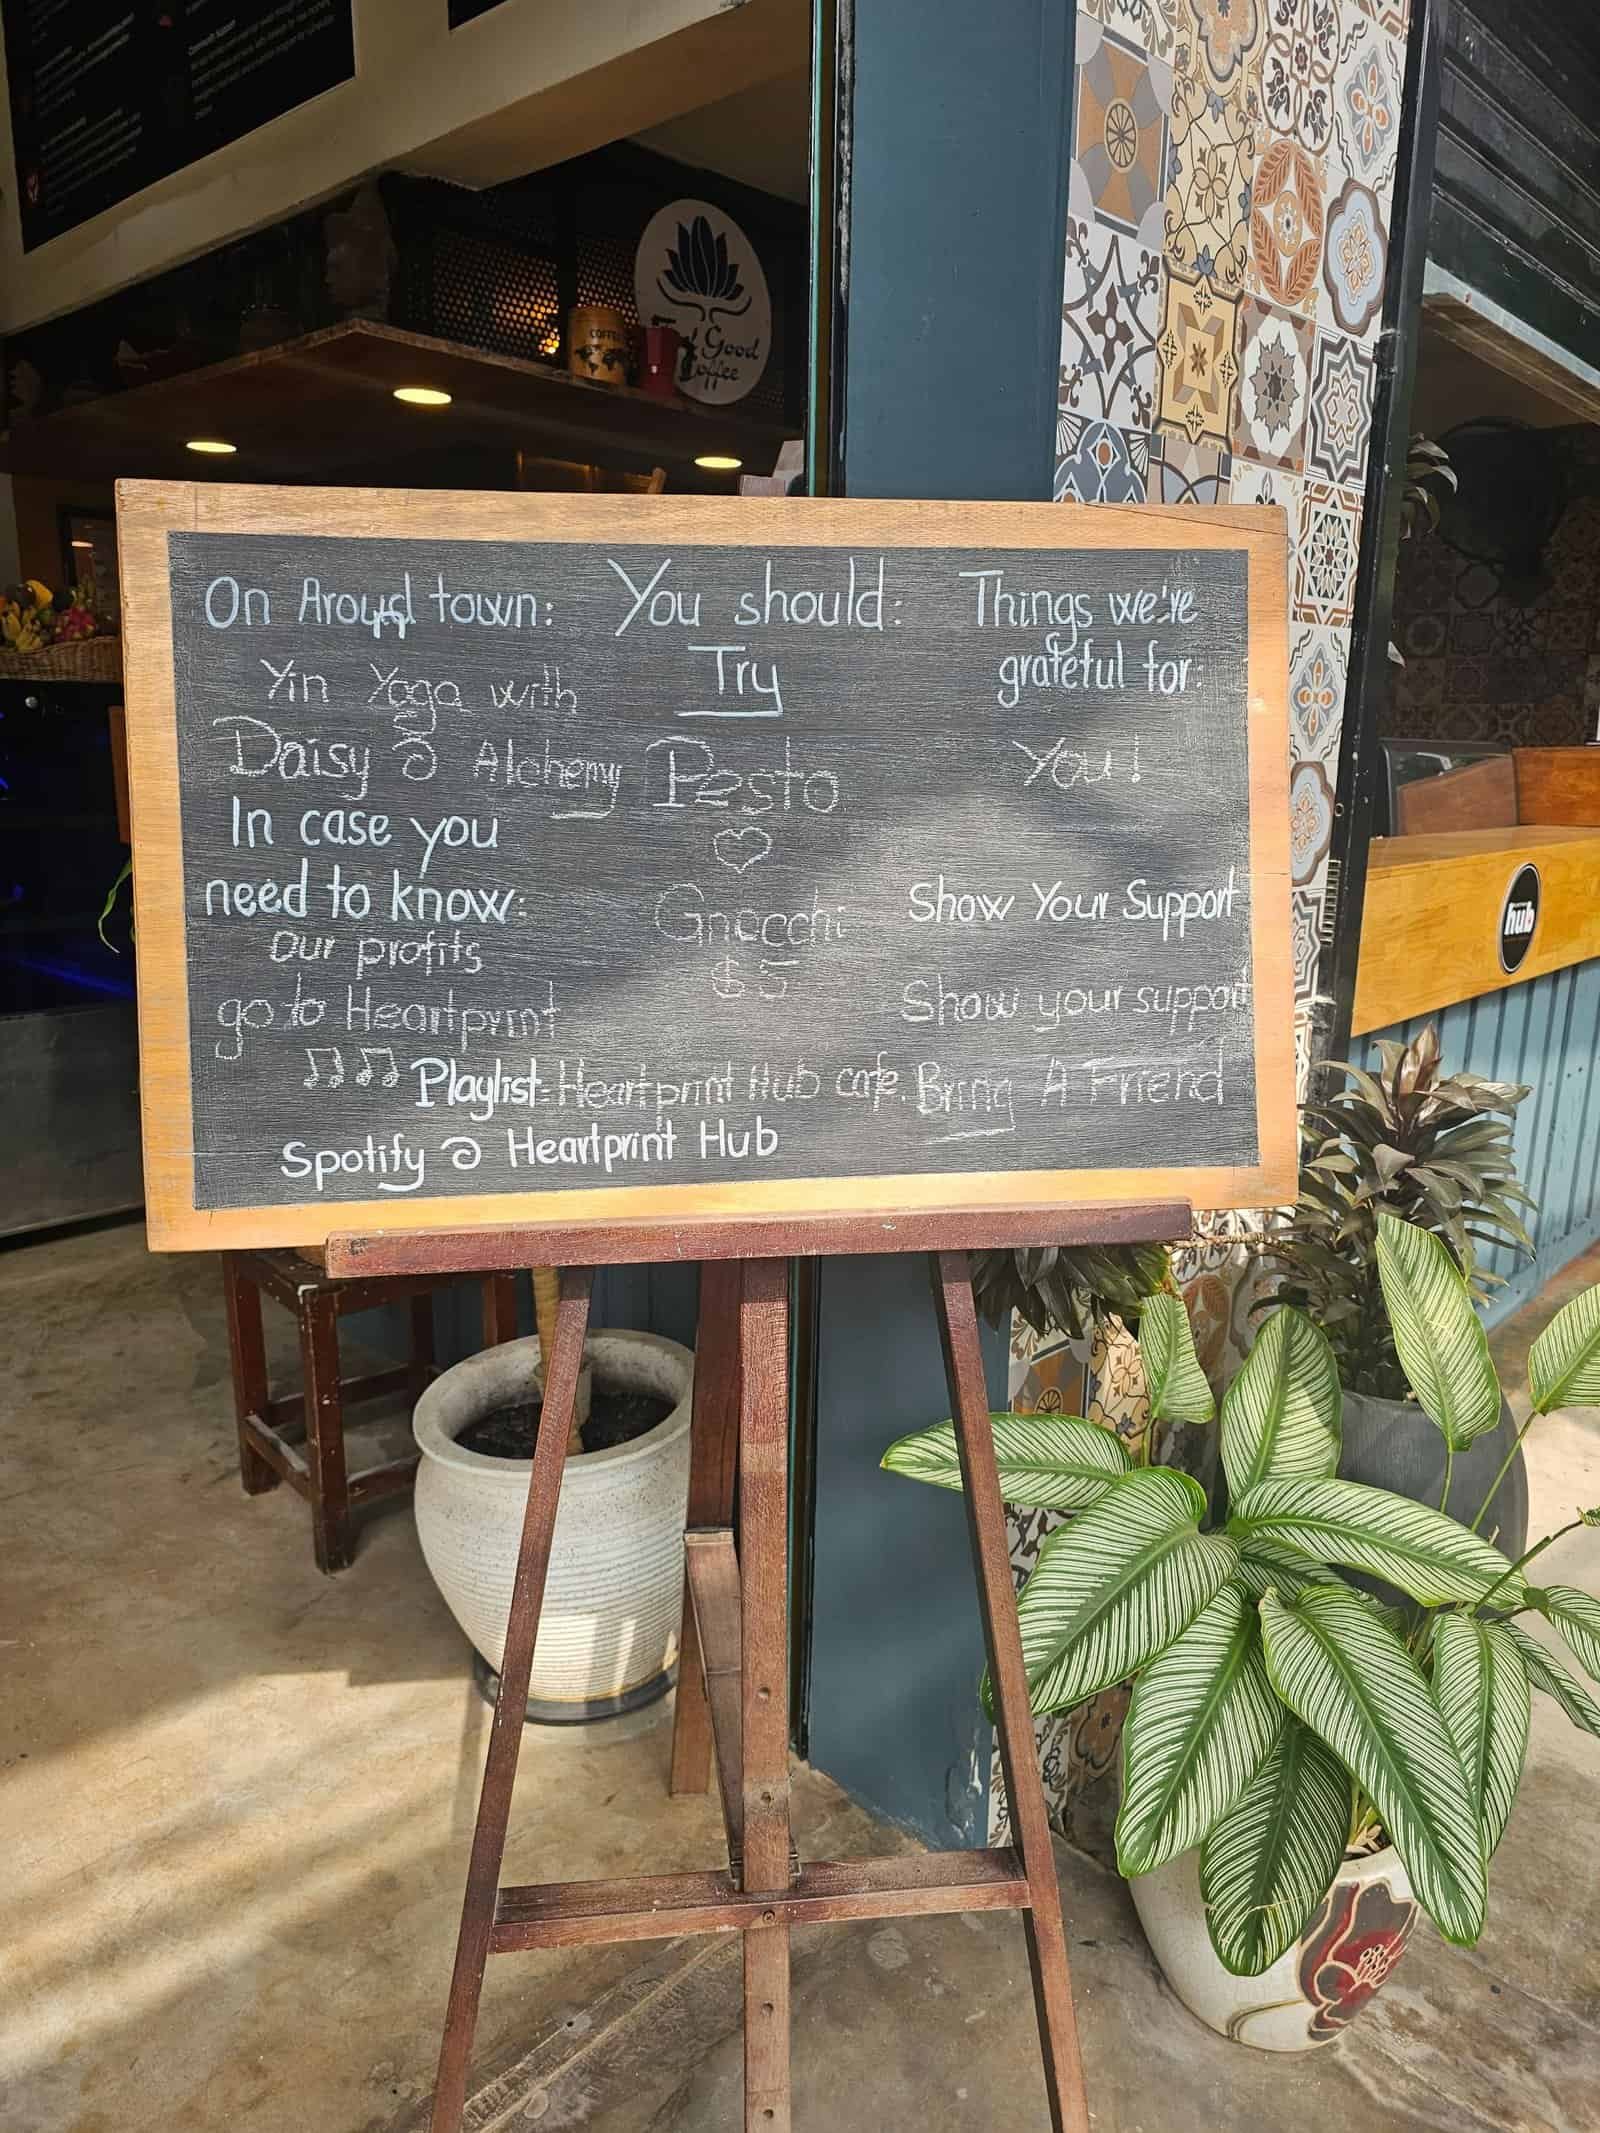 On Around town:
Yin Yoga with
Daisy @ Alchemy
In case you
need to know:
Our profits
go to Heartprint
You should:
Try
Pesto
Gnocchi
$5
Things we're
grateful for:
You!
Show Your Support
Show your support
Bring A Friend
Playlist: Heartprint Hub cafe.
Spotify @ Heartprint Hub
COFFEE
Good
Coffee
hub